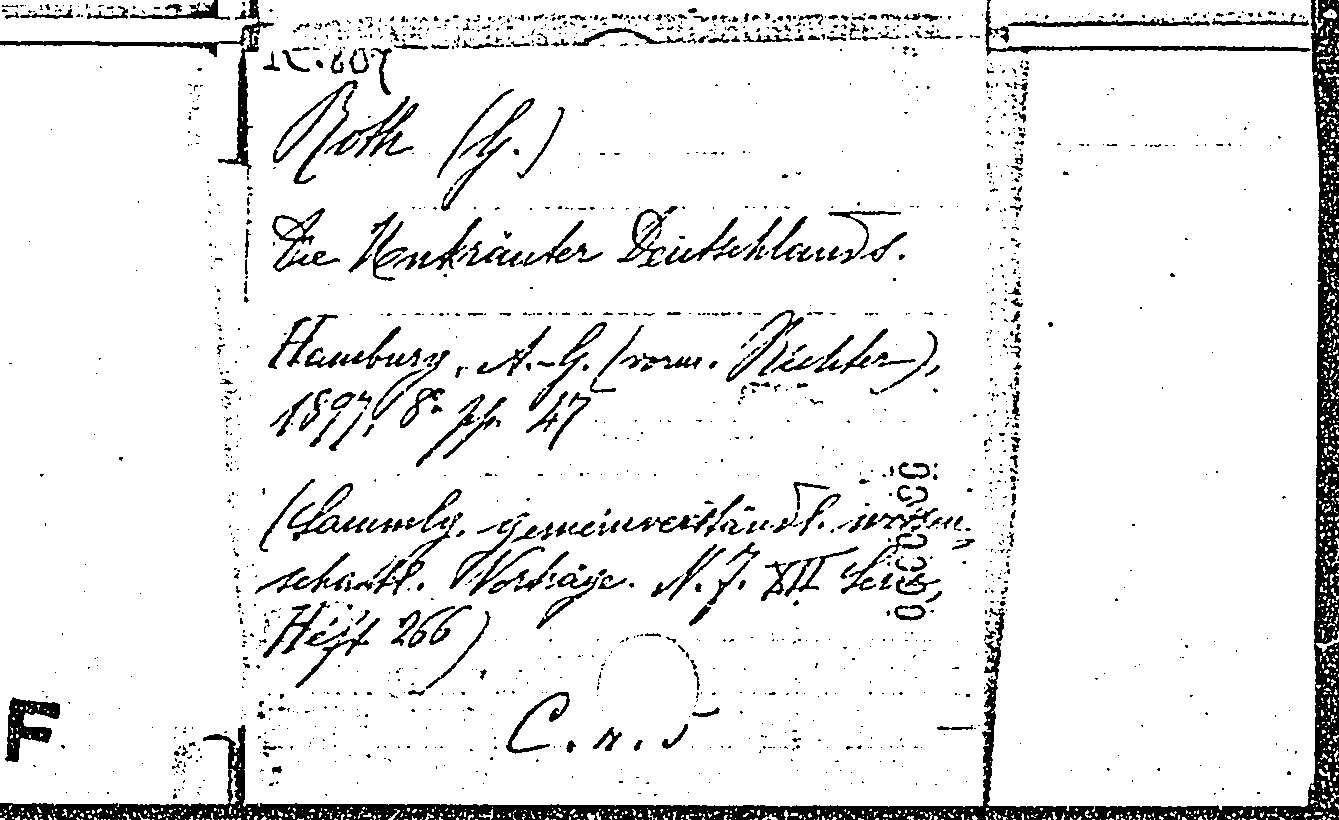 Roth (G.)
Die Unkräuter Deutschlands.
Hamburg, A.-G. (vorm. Richter),
1897, 8º pp. 47
(Sammlg. gemeinverständl. wissen-
schaftl. Vorträge. N. F. XII Serie,
Heft 266)
C. n. 5
F